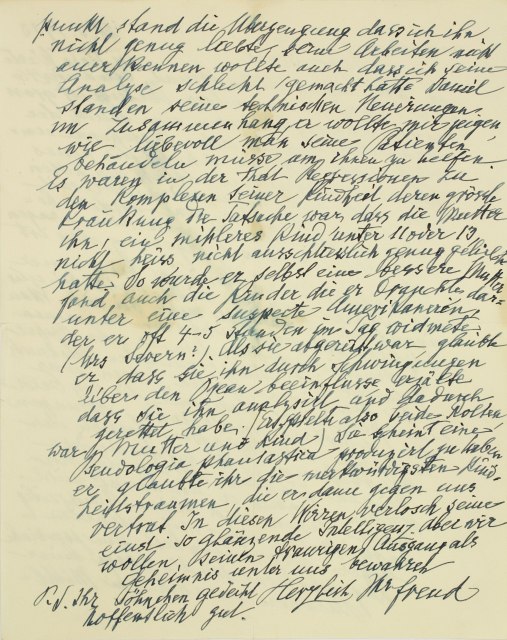 punkt stand die Überzeugung dass ich ihn
nicht genug liebte, seine Arbeiten nicht
anerkennen wollte auch dass ich seine
Analyse schlecht gemacht hätte Damit
standen seine technischen Neuerungen
im Zusammenhang er wollte mir zeigen
wie liebevoll man seine Patienten
behandeln müsse um ihnen zu helfen.
Es waren in der That Regressionen zu
den Komplexen seiner Kindheit deren grösste
Kränkung die Tatsache war, dass die Mutter
ihn, ein mittleres Kind unter 11 oder 13
nicht heiss nicht ausschliesslich genug geliebt
hatte So wurde er selbst eine bessere Mutter
fand auch die Kinder die er brauchte dar-
unter eine suspecte Amerikanerin,
der er oft 4-5 Stunden im Tag widmete
(Mrs Severn?) Als sie abgereist war glaubte
er dass sie ihn durch Schwingungen
über den Ozean beeinflusse erzählte
dass sie ihn analysirt und dadurch
gerettet habe. (Er spielte also beide Rollen
war Mutter und Kind) Sie scheint eine
Pseudologia phantastica produzirt zu haben
er glaubte ihr die merkwürdigsten Kind-
heitstraumen, die er dann gegen uns
vertrat In diesen Wirren verlosch seine
einst so glänzende Intelligenz Aber wir
wollen seinen traurigen Ausgang als
Geheimnis unter uns bewahren
Herzlich Ihr Freud
P.S. Ihr Söhnchen gedeiht
hoffentlich gut.